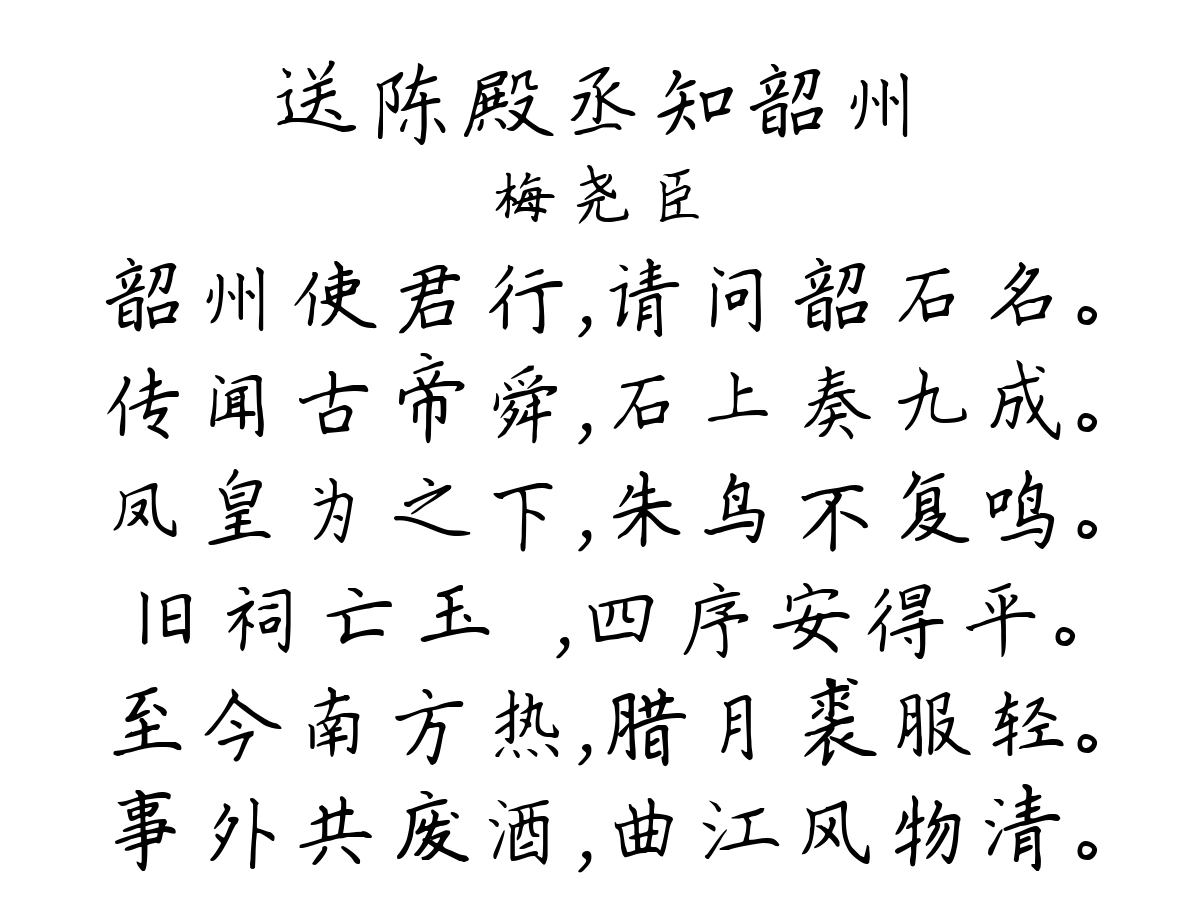 送陈殿丞知韶州
梅尧臣
韶州使君行,请问韶石名。
传闻古帝舜,石上奏九成。
凤皇为之下,朱鸟不复鸣。
旧祠亡玉 ,四序安得平。
至今南方热,腊月裘服轻。
事外共废酒,曲江风物清。